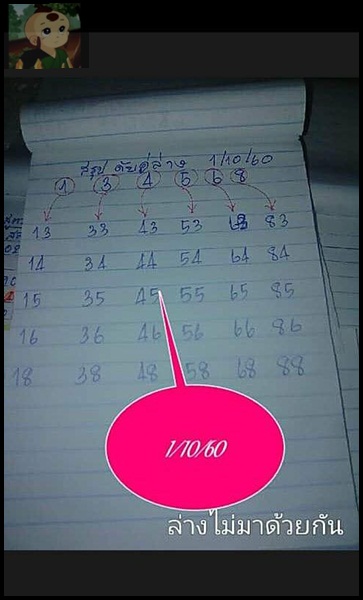 สรุป ดับคู่ล่าง 1/10/60
1 3 4 5 6 8
13 33 43 53 63 83
14 34 44 54 64 84
15 35 45 55 65 85
16 36 46 56 66 86
18 38 48 58 68 88
1/10/60
ล่างไม่มาด้วยกัน